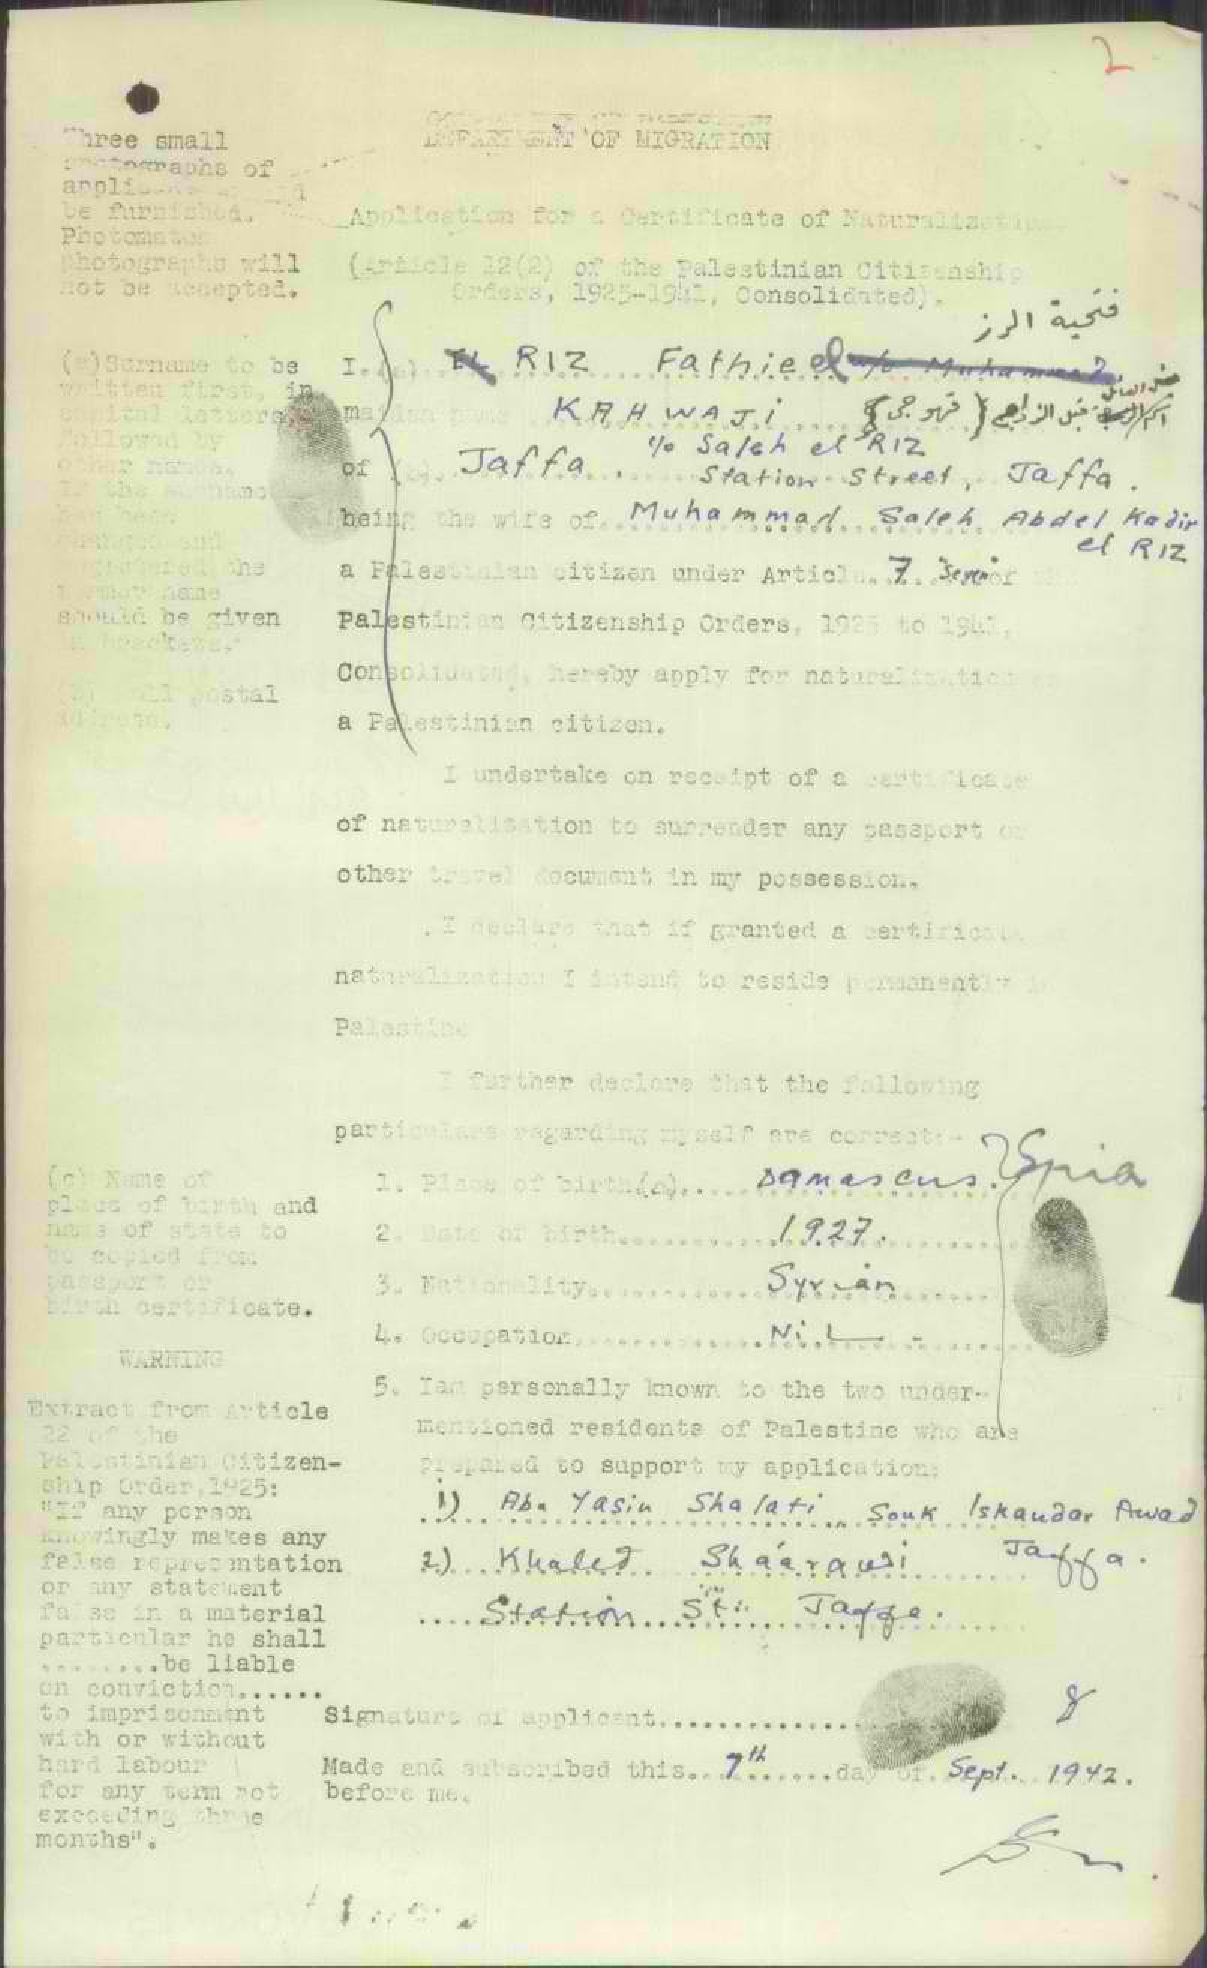 2
DEPARTMENT OF MIGRATION
Three small
photographs of
be furnished.
Photomaton
photographs will
not be accepted.
Application for a Certificate of Naturalization
(Article 12(2) of the Palestinian Citizenship
Orders, 1925-1941, Consolidated).
فتحية الرز
(a)Surname to be
written first, in
capital letters,
followed by
other names.
If the surname
has been
changed and
the
former name
should be given
in brackets.
(b) Full postal
address.
I (a) RIZ Fathie el
maiden name KAHWAJI { قهوجي }
c/o Saleh el RIZ
of (b) Jaffa. Station Street, Jaffa.
being the wife of Muhammad Saleh Abdel Kadir
el RIZ
a Palestinian citizen under Article 7 Seven of the
Palestinian Citizenship Orders, 1925 to 1941,
Consolidated, hereby apply for naturalization as
a Palestinian citizen.
I undertake on receipt of a certificate
of naturalization to surrender any passport or
other travel document in my possession.
I declare that if granted a certificate of
naturalization I intend to reside permanently in
Palestine
I further declare that the following
particulars regarding myself are correct:-
(c) Name of
place of birth and
name of state to
be copied from
passport or
birth certificate.
1. Place of birth(c).. Damascus. Syria
2. Date of birth............1927.
3. Nationality............ Syrian
4. Occupation............ Nil
5. I am personally known to the two under-
mentioned residents of Palestine who are
prepared to support my application:
1) Abu Yasin Shalati Souk Iskandar Awad
Jaffa.
2) Khaled Shaarawi
Station St. Jaffa.
WARNING
Extract from Article
22 of the
Palestinian Citizen-
ship Order,1925:
"If any person
knowingly makes any
false representation
or any statement
false in a material
particular he shall
........be liable
on conviction......
to imprisonment
with or without
hard labour
for any term not
exceeding three
months".
Signature of applicant...............
Made and subscribed this..7th.......day of. Sept. 1942.
before me.